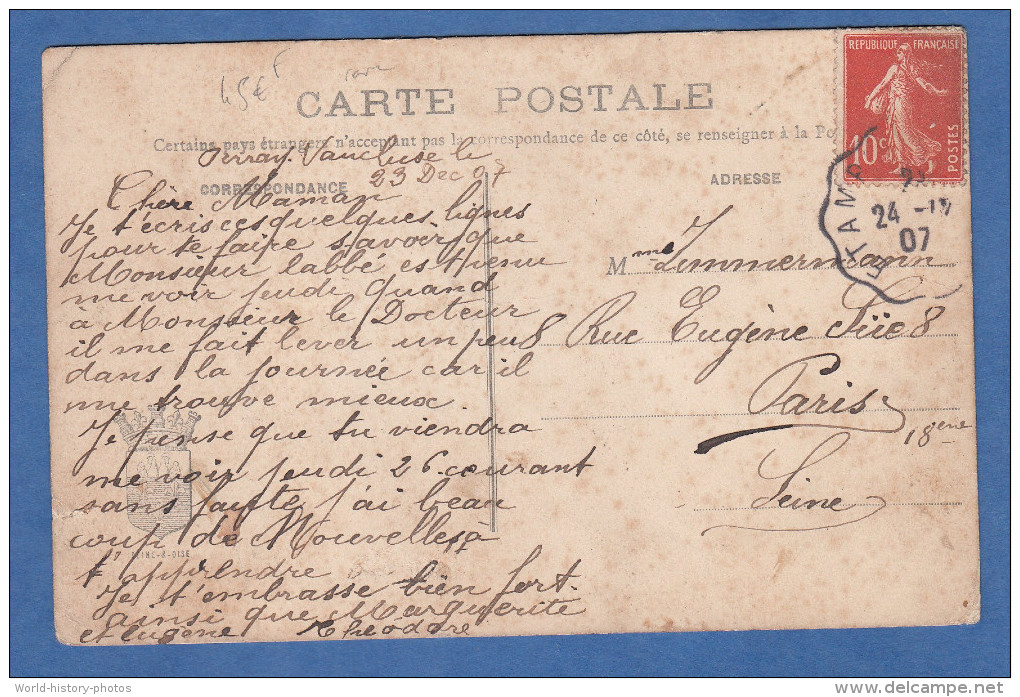 45€
CARTE POSTALE
Certains pays étrangers n'acceptent pas la correspondance de ce côté, se renseigner à la Po
Perray Vaucluse le
23 Dec 07
CORRESPONDANCE
Chère Maman
Je t'écris ces quelques lignes
pour te faire savoir que
Monsieur labbé est venu
me voir jeudi quand
à Monsieur le Docteur
il me fait lever un peu
dans la journée car il
me trouve mieux.
Je pense que tu viendra
me voir jeudi 26 courant
sans faute j'ai beau
coup de Nouvelles à
t'apprendre
Je t'embrasse bien fort
ainsi que Marguerite
et Eugène Théodore
SEINE-&-OISE
ADRESSE
Mme Zimmermann
8 Rue Eugène Süe 8
Paris
18ème
Seine
REPUBLIQUE FRANÇAISE
10c
POSTES
ETAMP
24 -12
07
World-history-photos
www.delcampe.net